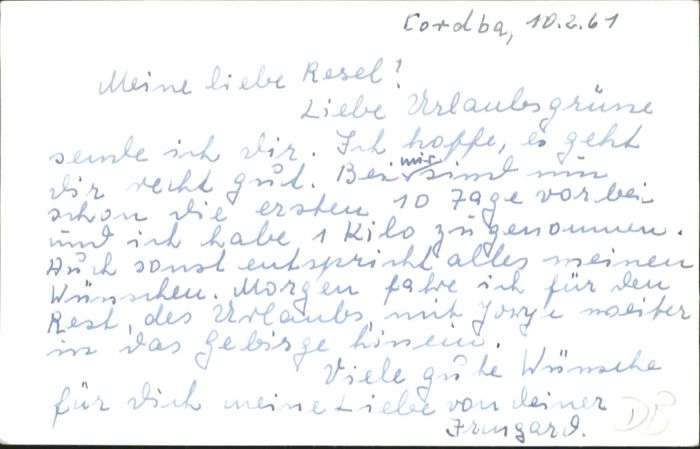 Cordba, 10.2.61
Meine liebe Resel!
Liebe Urlaubsgrüsse
sende ich dir. Ich hoffe, es geht
dir recht gut. Bei mir sind nun
schon die ersten 10 Tage vorbei
und ich habe 1 Kilo zugenommen.
Auch sonst entspricht alles meinen
Wünschen. Morgen fahre ich für den
Rest, des Urlaubs, mit Jorge weiter
in das Gebirge hinein.
Viele gute Wünsche
für dich meine Liebe von deiner
Irmgard.
DB